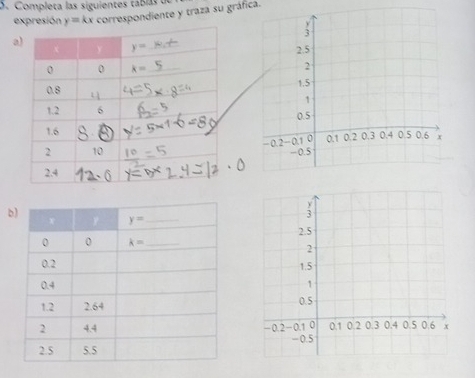 3. Completa las siguientes tablas de
expresión y = kx correspondiente y traza su gráfica.
a)
x y y =
0 0 k = 5
0.8 4 4=5×.8=4
1.2 6 =5
1.6 8 y=5×1.6=8
2 10 10/2=5
2.4 12.0 2.4=12.0
y
3
2.5
2
1.5
1
0.5
-0.2 -0.1 0 0.1 0.2 0.3 0.4 0.5 0.6 x
-0.5
b)
x y y =
0 0 k =
0.2
0.4
1.2 2.64
2 4.4
2.5 5.5
y
3
2.5
2
1.5
1
0.5
-0.2 -0.1 0 0.1 0.2 0.3 0.4 0.5 0.6 x
-0.5